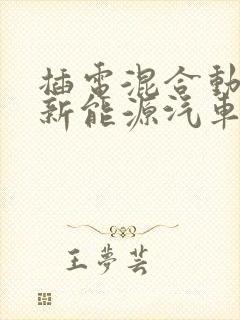 插電混合動
新能源汽車
王夢芸